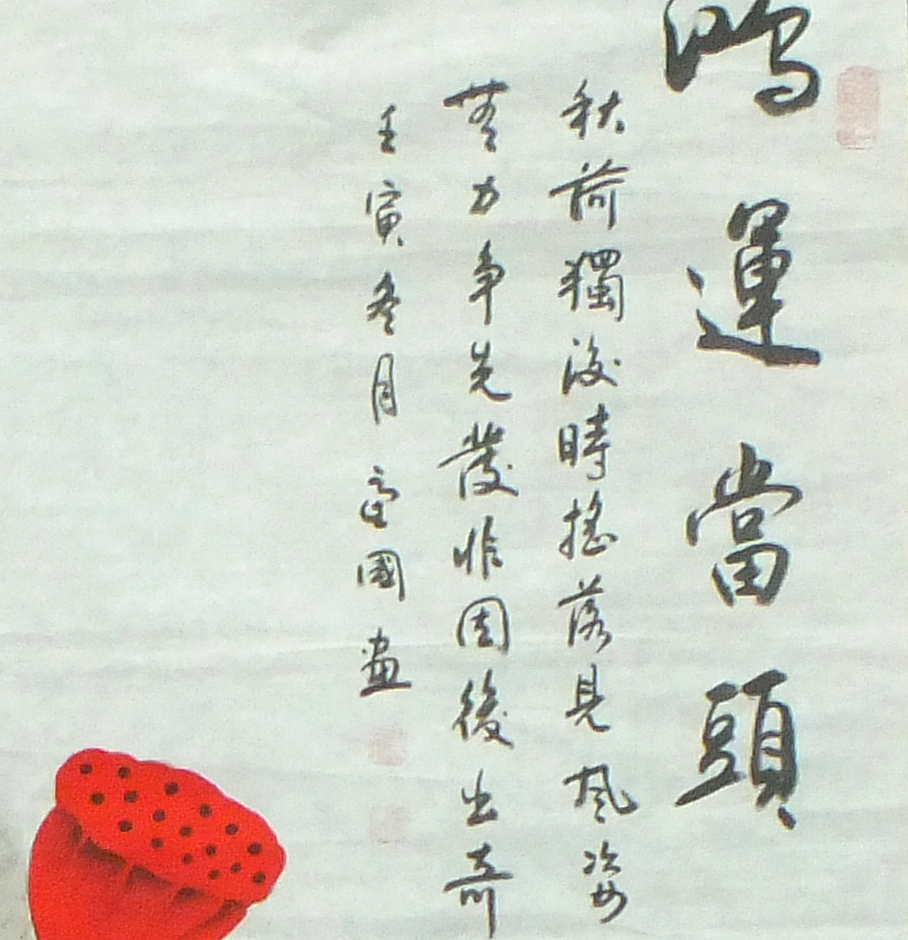 鴻運當頭
秋荷獨後時搖落見風姿
無力争先發非因後出奇
壬寅冬月國畫